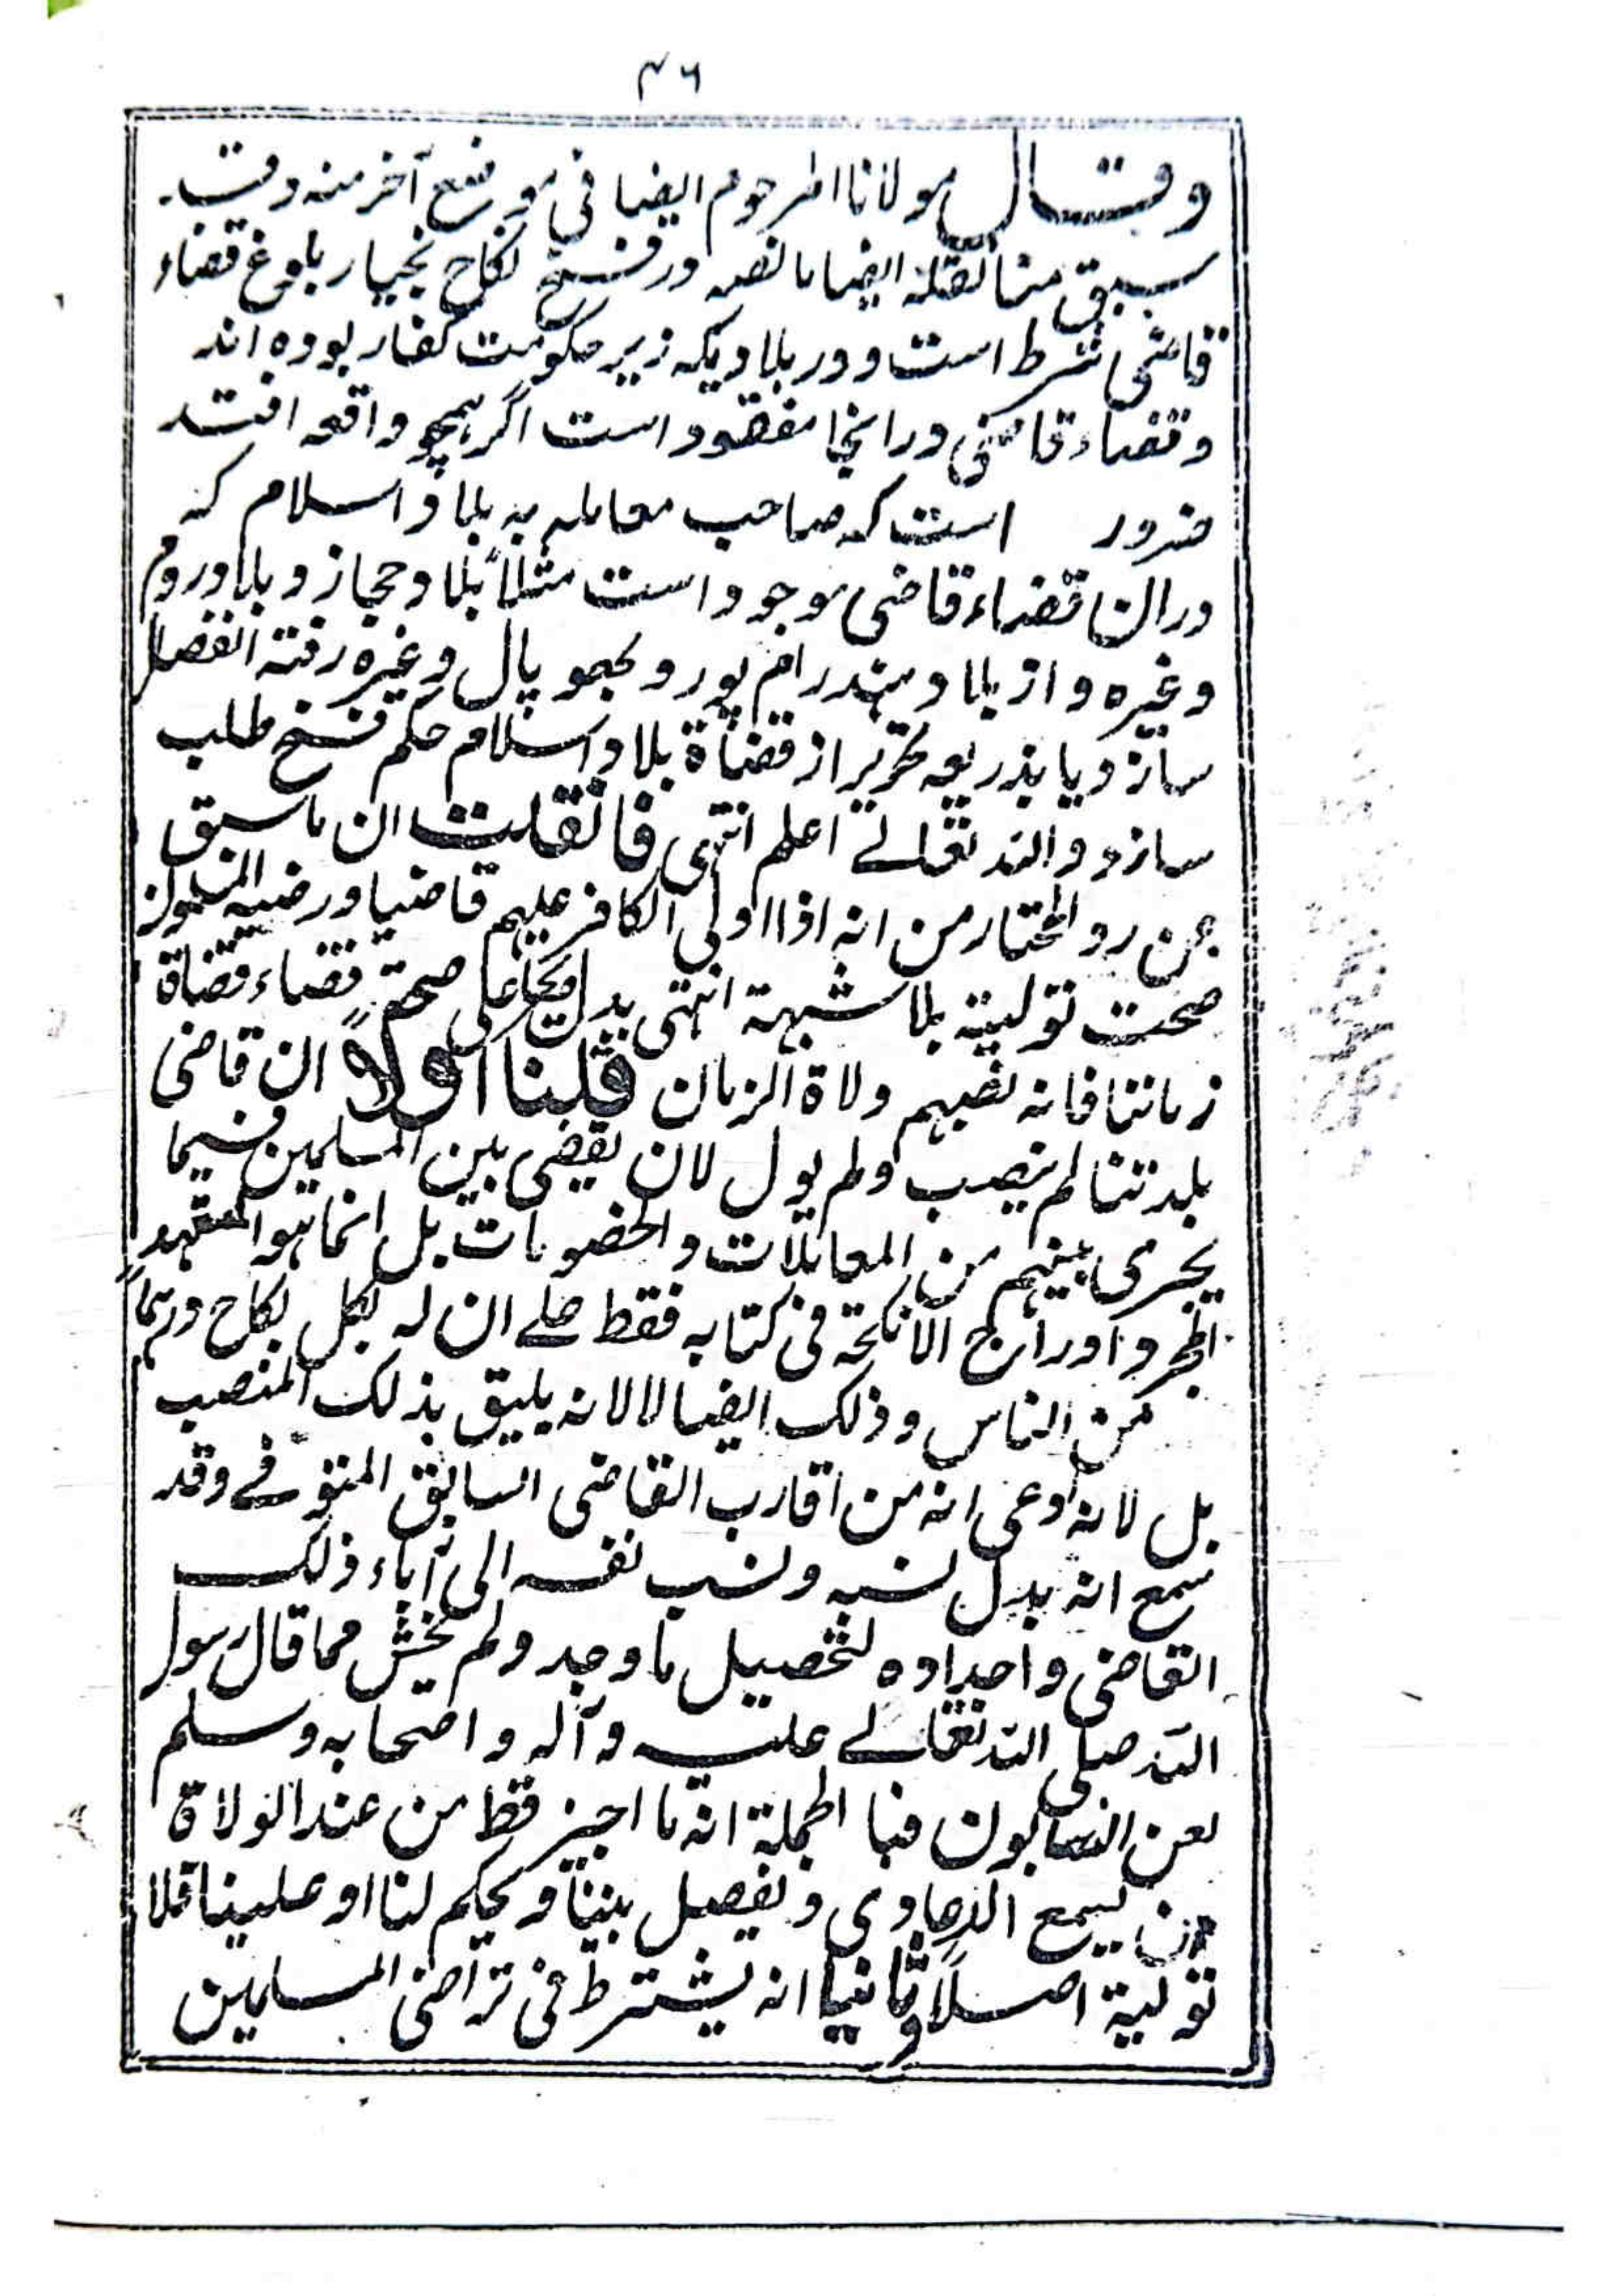 ٤٦
وقال مولانا المرحوم ایضا فی موضع آخر منه وقد
سبق منا نقله ایضا ما نصه در فسخ نکاح بخیار بلوغ قضاء
قاضی شرط است و در بلادیکه زیر حکومت کفار بوده اند
وقضاء قاضی در انجا مفقود است اگر همچو واقعه افتد
ضرور است که صاحب معامله به بلاد اسلام که
دران قضاء قاضی موجود است مثلاً بلاد حجاز و بلاد روم
وغیره و از بلاد هند رام پور و بھوپال وغیره رفته انفصال
سازد و یا بذریعه تحریر از قضاة بلاد اسلام حکم فسخ طلب
سازد والله تعالے اعلم انتهی فان قلت ان ما سبق
عن رد المحتار من انه اذا اولی الکافر علیهم قاضیا ورضیه المسلمون
صحت تولیته بلا شبهة انتهی یدل علی صحة قضاء قضاة
زماننا فانه نصبهم ولاة الزمان قلنا اولاً ان قاضی
بلدتنا لم ینصب ولم یول لان یقضی بین المسلمین فیما
یجری بینهم من المعاملات والخصومات بل انما هو لتعهد
المجر و اوراج الانکحة فی کتابه فقط علے ان له لکل نکاح درهماً
من الناس وذلک ایضا لا لانه یلیق بذلک المنصب
بل لانه ادعی انه من اقارب القاضی السابق المتوفے وقد
سمع انه بدل نسبه ونسب نفسه الی آباء ذلک
القاضی واجداده لتحصیل ما وجد ولم یخش مما قال رسول
الله صلی الله تعالے علیه وآله واصحابه وسلم
لعن النسابون فبالجملة انه ما اجیز قط من عند الولاة
ان یسمع الدعاوی ویفصل بیننا ویحکم لنا او علینا فلا
تولیة اصلاً وثانیا انه یشترط فی تراضی المسلمین